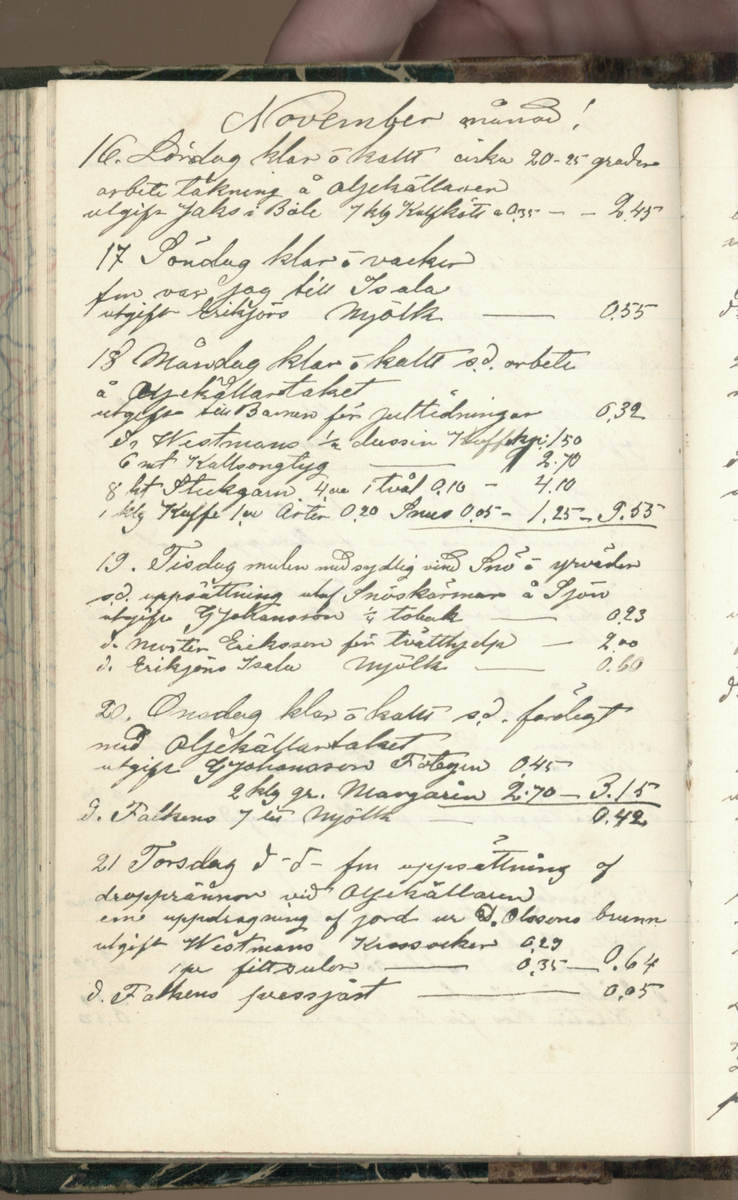 November månad!
16. Lördag klar o kallt cirka 20-25 grader
arbete täkning å Oljekällaren
utgift Jaks i Böle 7 klg Kalfkött a 0.35 - - 2.45
17 Söndag klar o vacker
fm var jag till Isala
utgift Erikjörs Mjölk — 0.55
18 Måndag klar o kallt s.d. arbete
å Oljekällartaket
utgift till Barnen för jultidningar 0,32
d. Westmans ½ dussin 1,50
6 mt Kallsongtyg — 2.70
8 ht Stickgarn 4 1 tvål 0.10 - 4.10
1 klg Kaffe 1 Ärter 0.20 Snus 0.05 - 1,25 - 9.55
19. Tisdag mulen med sydlig vind Snö o yrväder
s.d. uppsättning utaf Snöskärmar å Sjön
utgift G Johansson ¼ tobak — 0.23
d. moster Eriksson för tvätthjelp — 2.00
d. Erikjörs Isala Mjölk — 0.60
20. Onsdag klar o kallt s.d. färdigt
med Oljekällartaket
utgift G Johansson Fotogen 0,45
2 klg gr. Margarin 2.70 - 3.15
d. Falkens 7 lit Mjölk — 0.42
21 Torsdag d - d - fm uppsättning af
dropprännor vid Oljekällaren
em uppdragning af jord ur D. Olssons brunn
utgift Westmans Krossocker 0.29
1 pr filtsulor — 0.35 — 0.64
d. Falkens pressjäst — 0.05